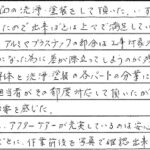 面の洗浄塗装をして頂いた。
たので出来ばえは上々で満足してい
アルミやプラスチックの部分は工事対象
になった為に差が際立ってしまうのが
体と洗浄塗装の各パートの分業に
担当者がその都度対応して頂いたが
を感じた。
アフターケアーが充実しているのは安
ごとに、作業前後を写真で確認出来